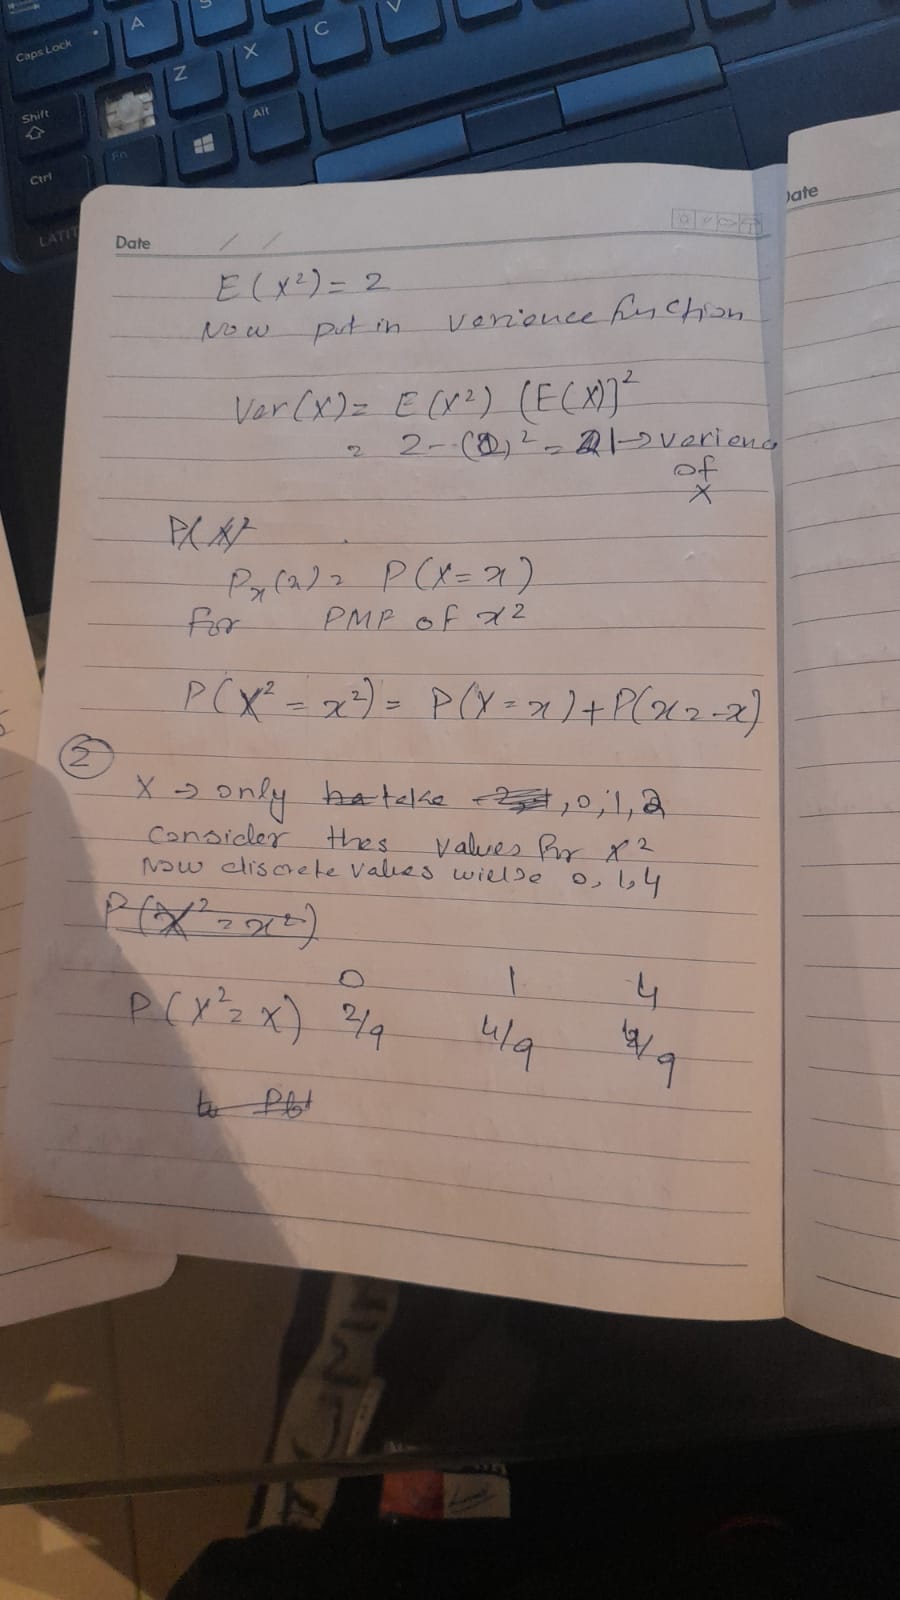 Caps Lock
A
S
C
V
Z
X
Shift
Alt
Fn
Ctrl
LATIT
Date / /
Date
E(x²) = 2
Now put in varience function
Var(X) = E(X²) (E(X)]²
= 2 - ( )² = 1 → varienc
of
X
P(X)²
Pₓ(x) = P(X = x)
for PMF of x²
P(X² = x²) = P(X = x) + P(x = -x)
②
X → only take , 0, 1, 2
Consider thes values for x²
Now discrete values will be 0, 1, 4
P(X² = x²)
0 1 4
P(X² = x) 2/9 4/9 /9